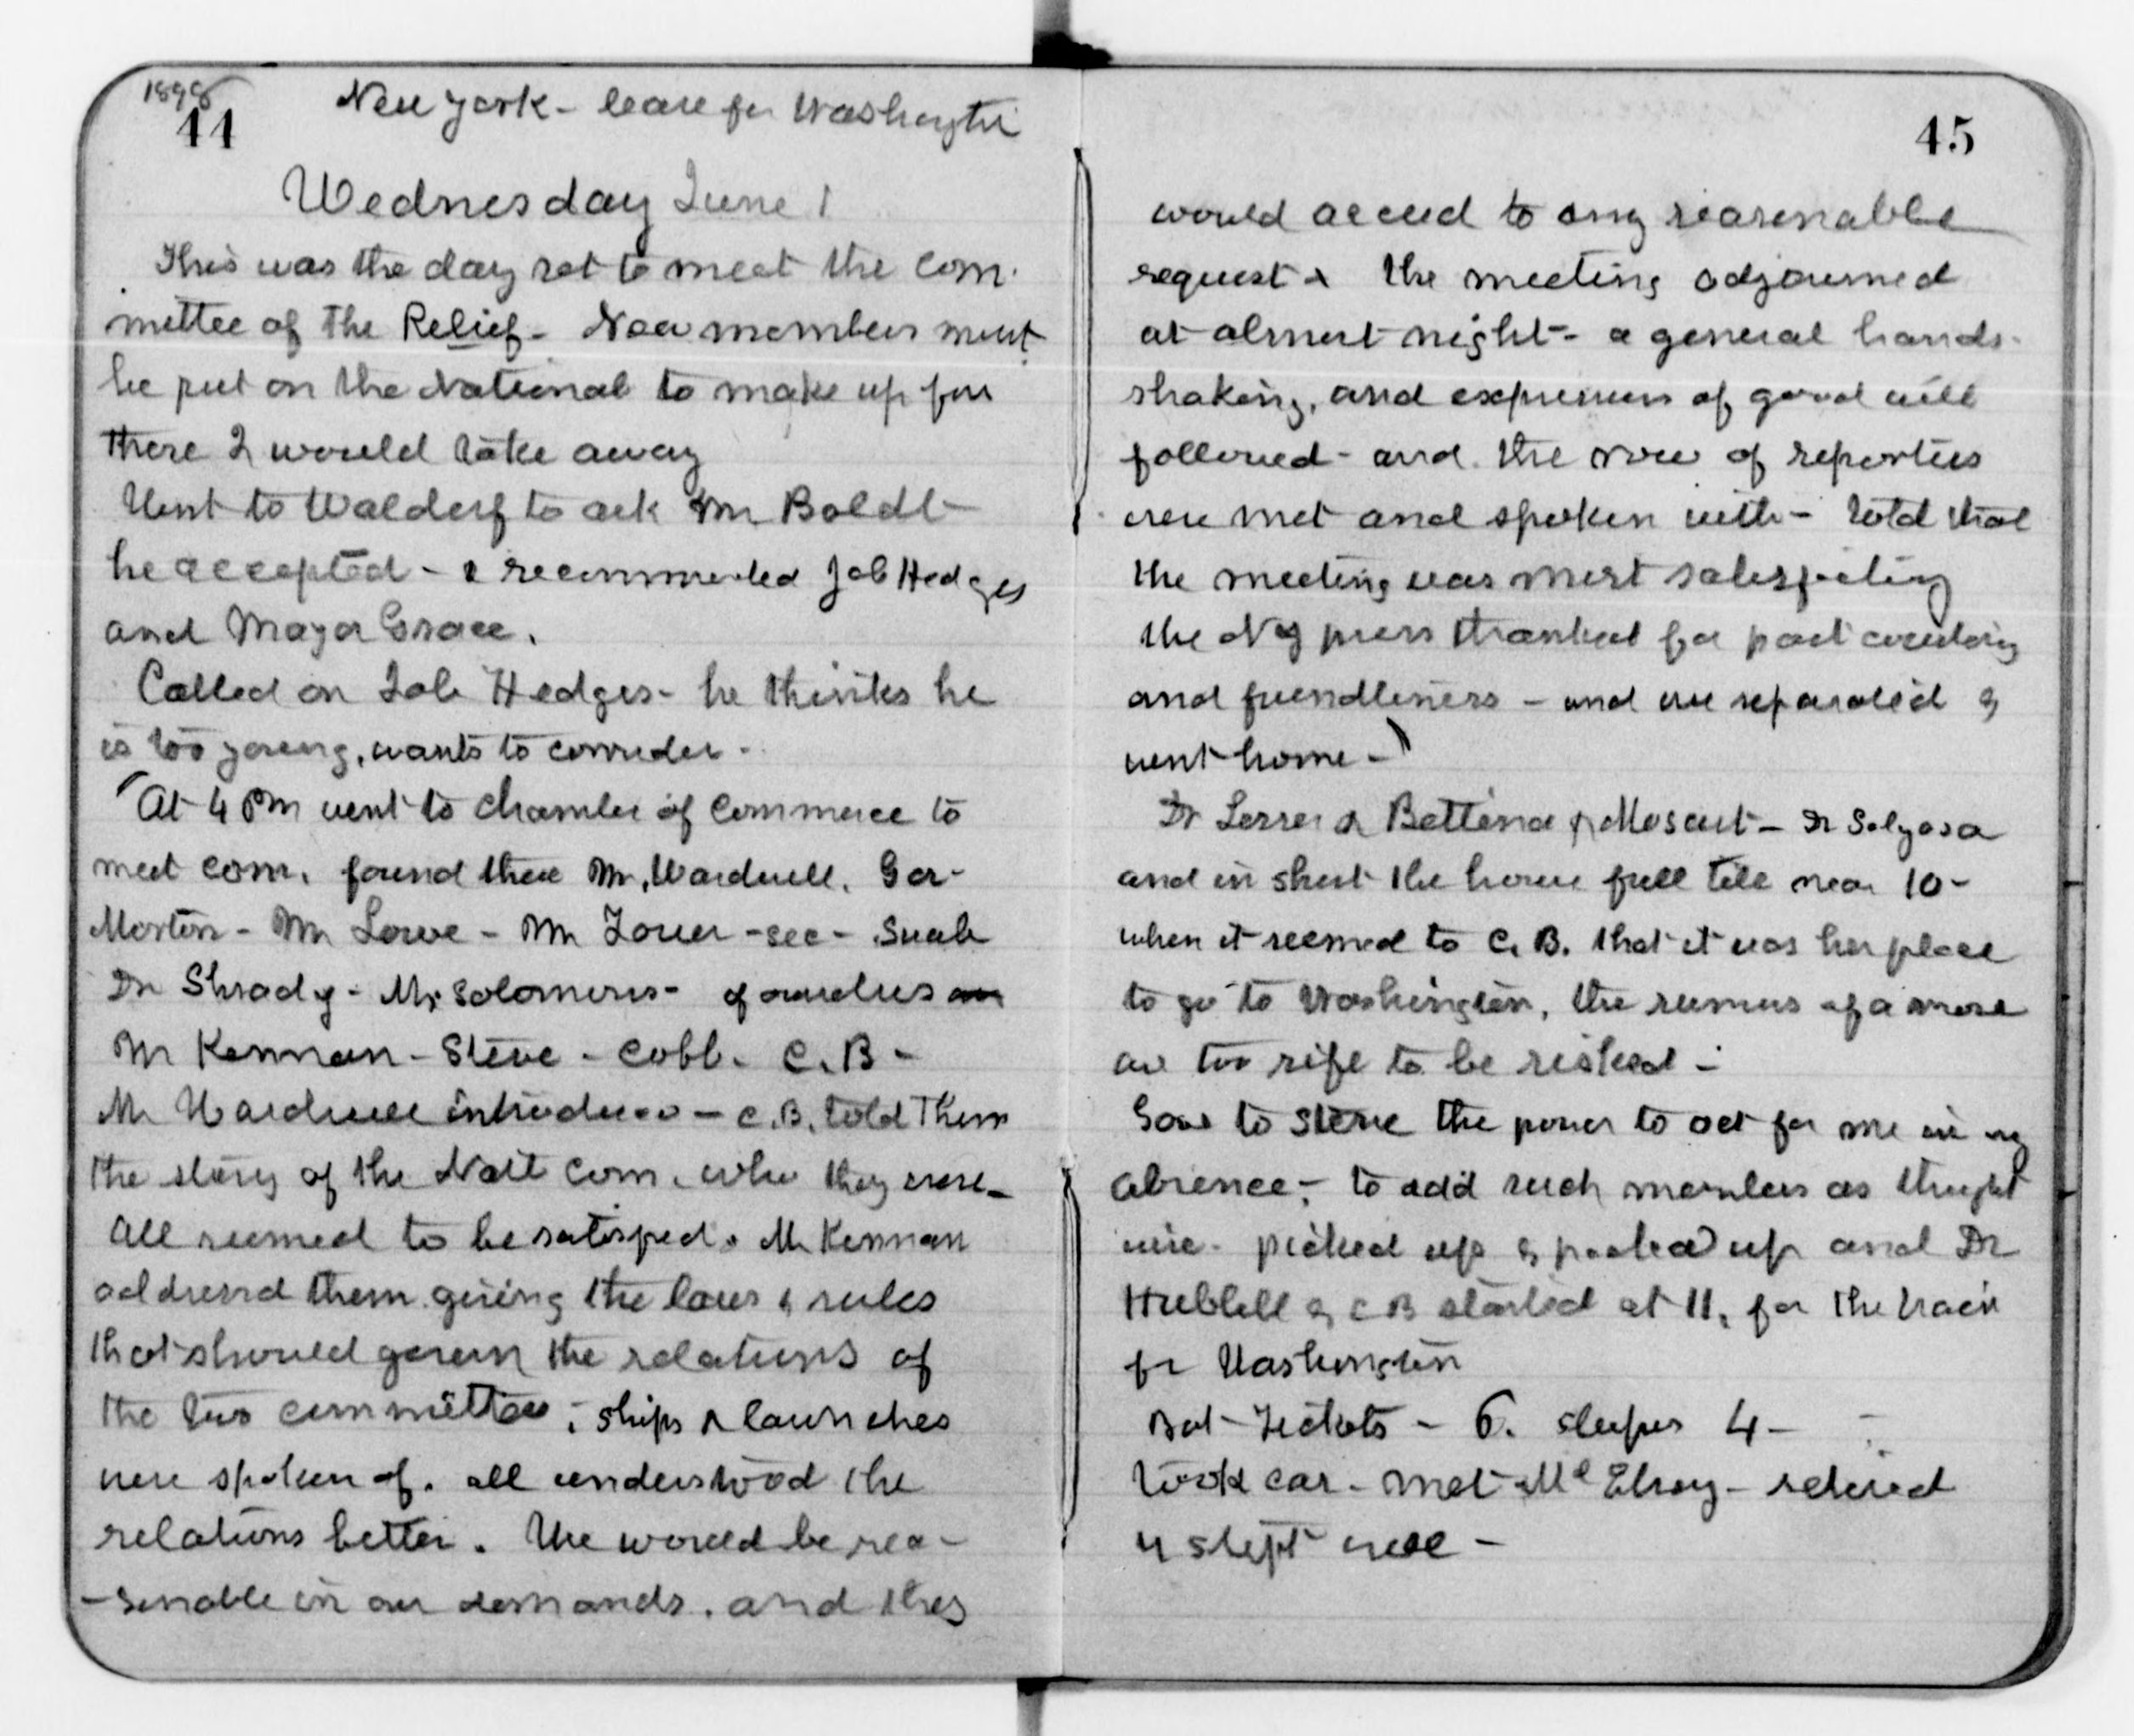 1898
44
New York - leave for Washington
Wednesday June 1
This was the day set to meet the com-
mittee of the Relief - New members must
be put on the National to make up for
those I would take away
Went to Waldorf to ask Mr Boldt -
he accepted - & recommended Job Hedges
and Mayor Grace.
Called on Job Hedges - he thinks he
is too young, wants to consider -
"At 4 PM went to chamber of Commerce to
meet com. found there Mr. Wardwell. Gov-
Morton - Mr Lowe - Mr Tower - sec -
Dr Shrady - Mr Solomons - of ourselves
Mr Kennan - Steve - Cobb - C. B -
Mr Wardwell introduces - C. B. told Them
the story of the Natl com. who they were -
All seemed to be satisfied. Mr Kennan
addressd them giving the laws & rules
that should govern the relations of
the two committees; ships & launches
were spoken of. all understood the
relations better. We would be rea-
-sonable in our demands. and they
45
would acceed to any reasonable
request & the meeting adjourned
at almost night - a general hands-
shaking, and expression of good will
followed - and the row of reporters
were met and spoken with - told that
the meeting was most satisfactory
the N Y press thanked for past courtesy
and friendliness - and we separated &
went home - "
Dr Lesser & Bettina & Moscut - Dr Solyosa
and in short the house full till near 10 -
when it seemed to C. B. that it was her place
to go to Washington, the rumors of a move
are too rife to be risked -
Gave to Steve the power to act for me in my
absence; - to add such members as thought
wise - picked up & packed up and Dr
Hubbell & C B started at 11, for the train
for Washington
Bot - Tickets - 6. sleeper 4 -
took car - met McElroy - retired
& slept well -